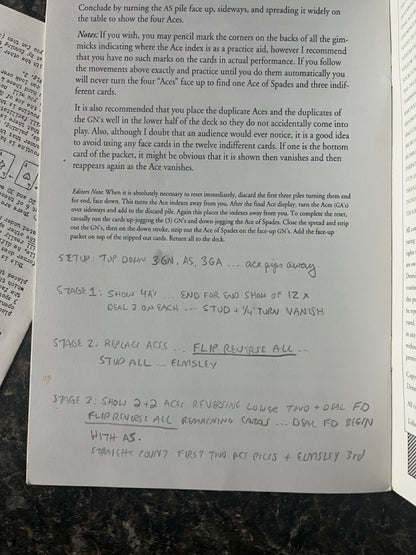 Conclude by turning the AS pile face up, sideways, and spreading it widely on
the table to show the four Aces.
Notes: If you wish, you may pencil mark the corners on the backs of all the gim-
micks indicating where the Ace index is as a practice aid, however I recommend
that you have no such marks on the cards in actual performance. If you follow
the movements above exactly and practice until you do them automatically you
will never turn the four "Aces" face up to find one Ace of Spades and three indif-
ferent cards.
It is also recommended that you place the duplicate Aces and the duplicates of
the GN's well in the lower half of the deck so they do not accidentally come into
play. Also, although I doubt that an audience would ever notice, it is a good idea
to avoid using any face cards in the twelve indifferent cards. If one is the bottom
card of the packet, it might be obvious that it is shown then vanishes and then
reappears again as the Ace vanishes.
Editors Note: When it is absolutely necessary to reset immediately, discard the first three piles turning them end
for end, face down. This turns the Ace indexes away from you. After the final Ace display, turn the Aces (GA's)
over sideways and add to the discard pile. Again this places the indexes away from you. To complete the reset,
casually run the cards up-jogging the (3) GN's and down-jogging the Ace of Spades. Close the spread and strip
out the GN's, then on the down stroke, strip out the Ace of Spades on the face-up GN's. Add the face-up
packet on top of the stripped out cards. Return all to the deck.
SETUP: TOP DOWN 3GN, AS, 3GA ... ace pips away
STAGE 1: SHOW 4A's ... END FOR END SHOW OF 12 X
DEAL 3 ON EACH ... STUD + 1/4 TURN VANISH
STAGE 2: REPLACE ACES ... FLIP REVERSE ALL ...
STUD ALL ... ELMSLEY
STAGE 3: SHOW 2+2 ACES REVERSING LOWER TWO + DEAL FD
FLIP REVERSE ALL REMAINING CARDS ... DEAL FD BEGIN
WITH AS.
STRAIGHT COUNT FIRST TWO ACE PILES + ELMSLEY 3rd